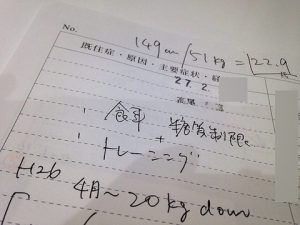 No.
149cm/51kg=22.9
既往症・原因・主要症状・経
27.2
食事 糖質制限
+
トレーニング
H26 4月〜20kg down